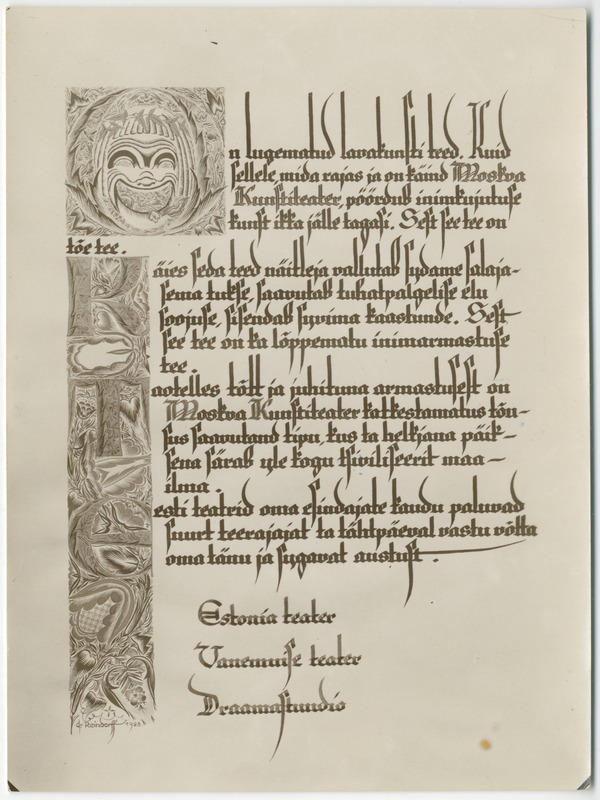 On lugematud lavakunsti teed. Kuid
sellele, mida rajas ja on käind Moskva
Kunstiteater, pöördub inimkujutuse
kunst ikka jälle tagasi. Sest see tee on
tõe tee.
Käies seda teed näitleja vallutab sydame salaja-
sema tukse, saavutab tuhatpalgelise elu
soojuse, sisendab syvima kaastunde. Sest
see tee on ka lõppematu inimarmastuse
tee.
Taotelles tõtt ja juhituna armastusest on
Moskva Kunstiteater katkestamatus tõu-
sus saavutand tipu, kus ta helkjana päik-
sena särab yle kogu tsiviliseerit maa-
ilma.
eesti teatrid oma esindajate kaudu paluvad
suurt teerajajat ta tähtpäeval vastu võtta
oma tänu ja sygavat austust.
Estonia teater
Vanemuise teater
Draamastuudio
G Reindorff 1928